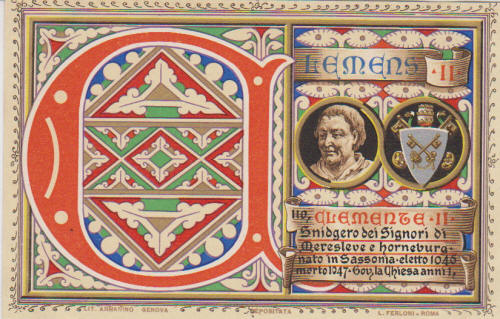 CLEMENS · II
119. CLEMENTE · II
Snidgero dei Signori di
Meresleve e Horneburg·
nato in Sassonia·eletto 1046
morto 1047·Gov. la Chiesa anni 1,
LIT. ARMANINO GENOVA DEPOSITATA L. FERLONI - ROMA